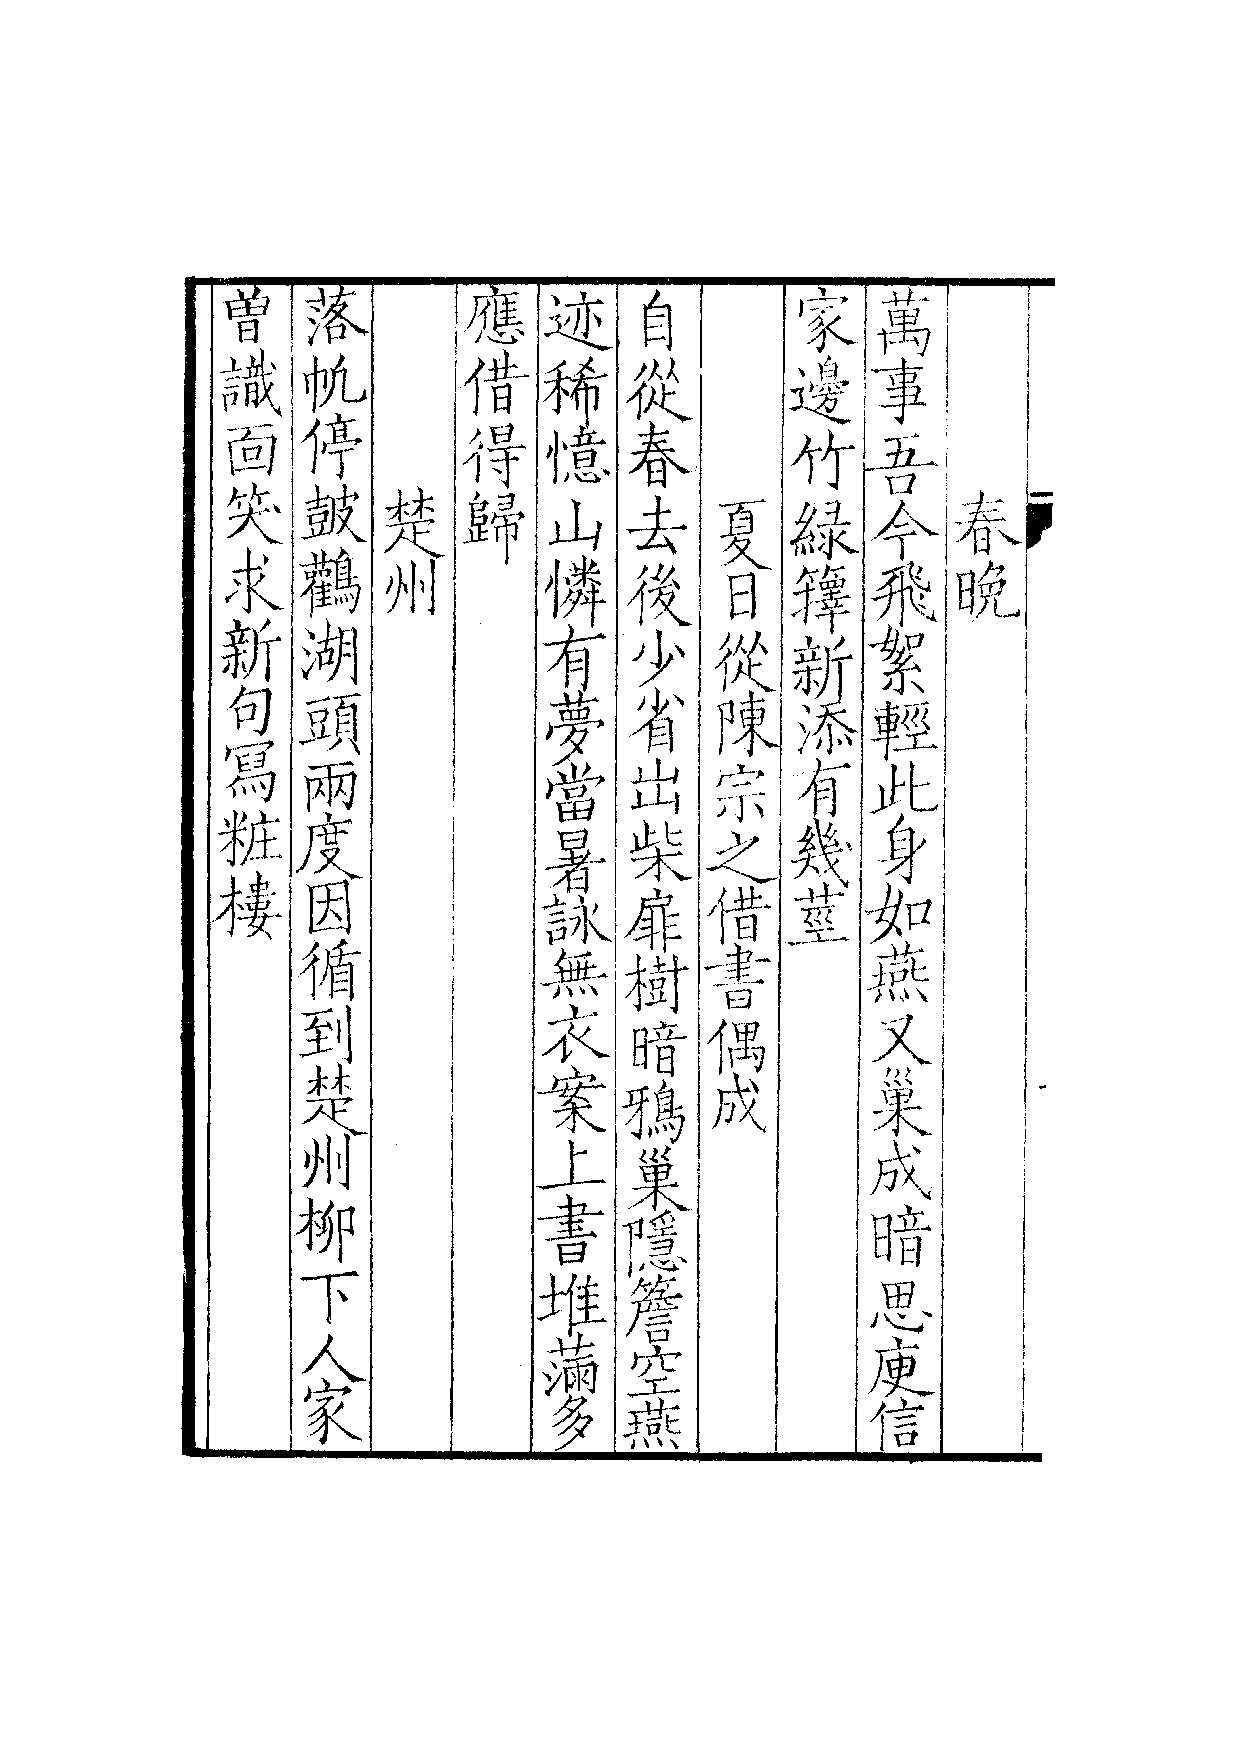 春晩
萬事吾今飛絮輕此身如燕又巢成暗思庾信
家邊竹綠籜新添有幾莖
夏日從陳宗之借書偶成
自從春去後少省出柴扉樹暗鴉巢隱簷空燕
迹稀憶山憐有夢當暑詠無衣案上書堆滿多
應借得歸
楚州
落帆停鼓鸛湖頭兩度因循到楚州柳下人家
曽識面笑求新句冩粧樓